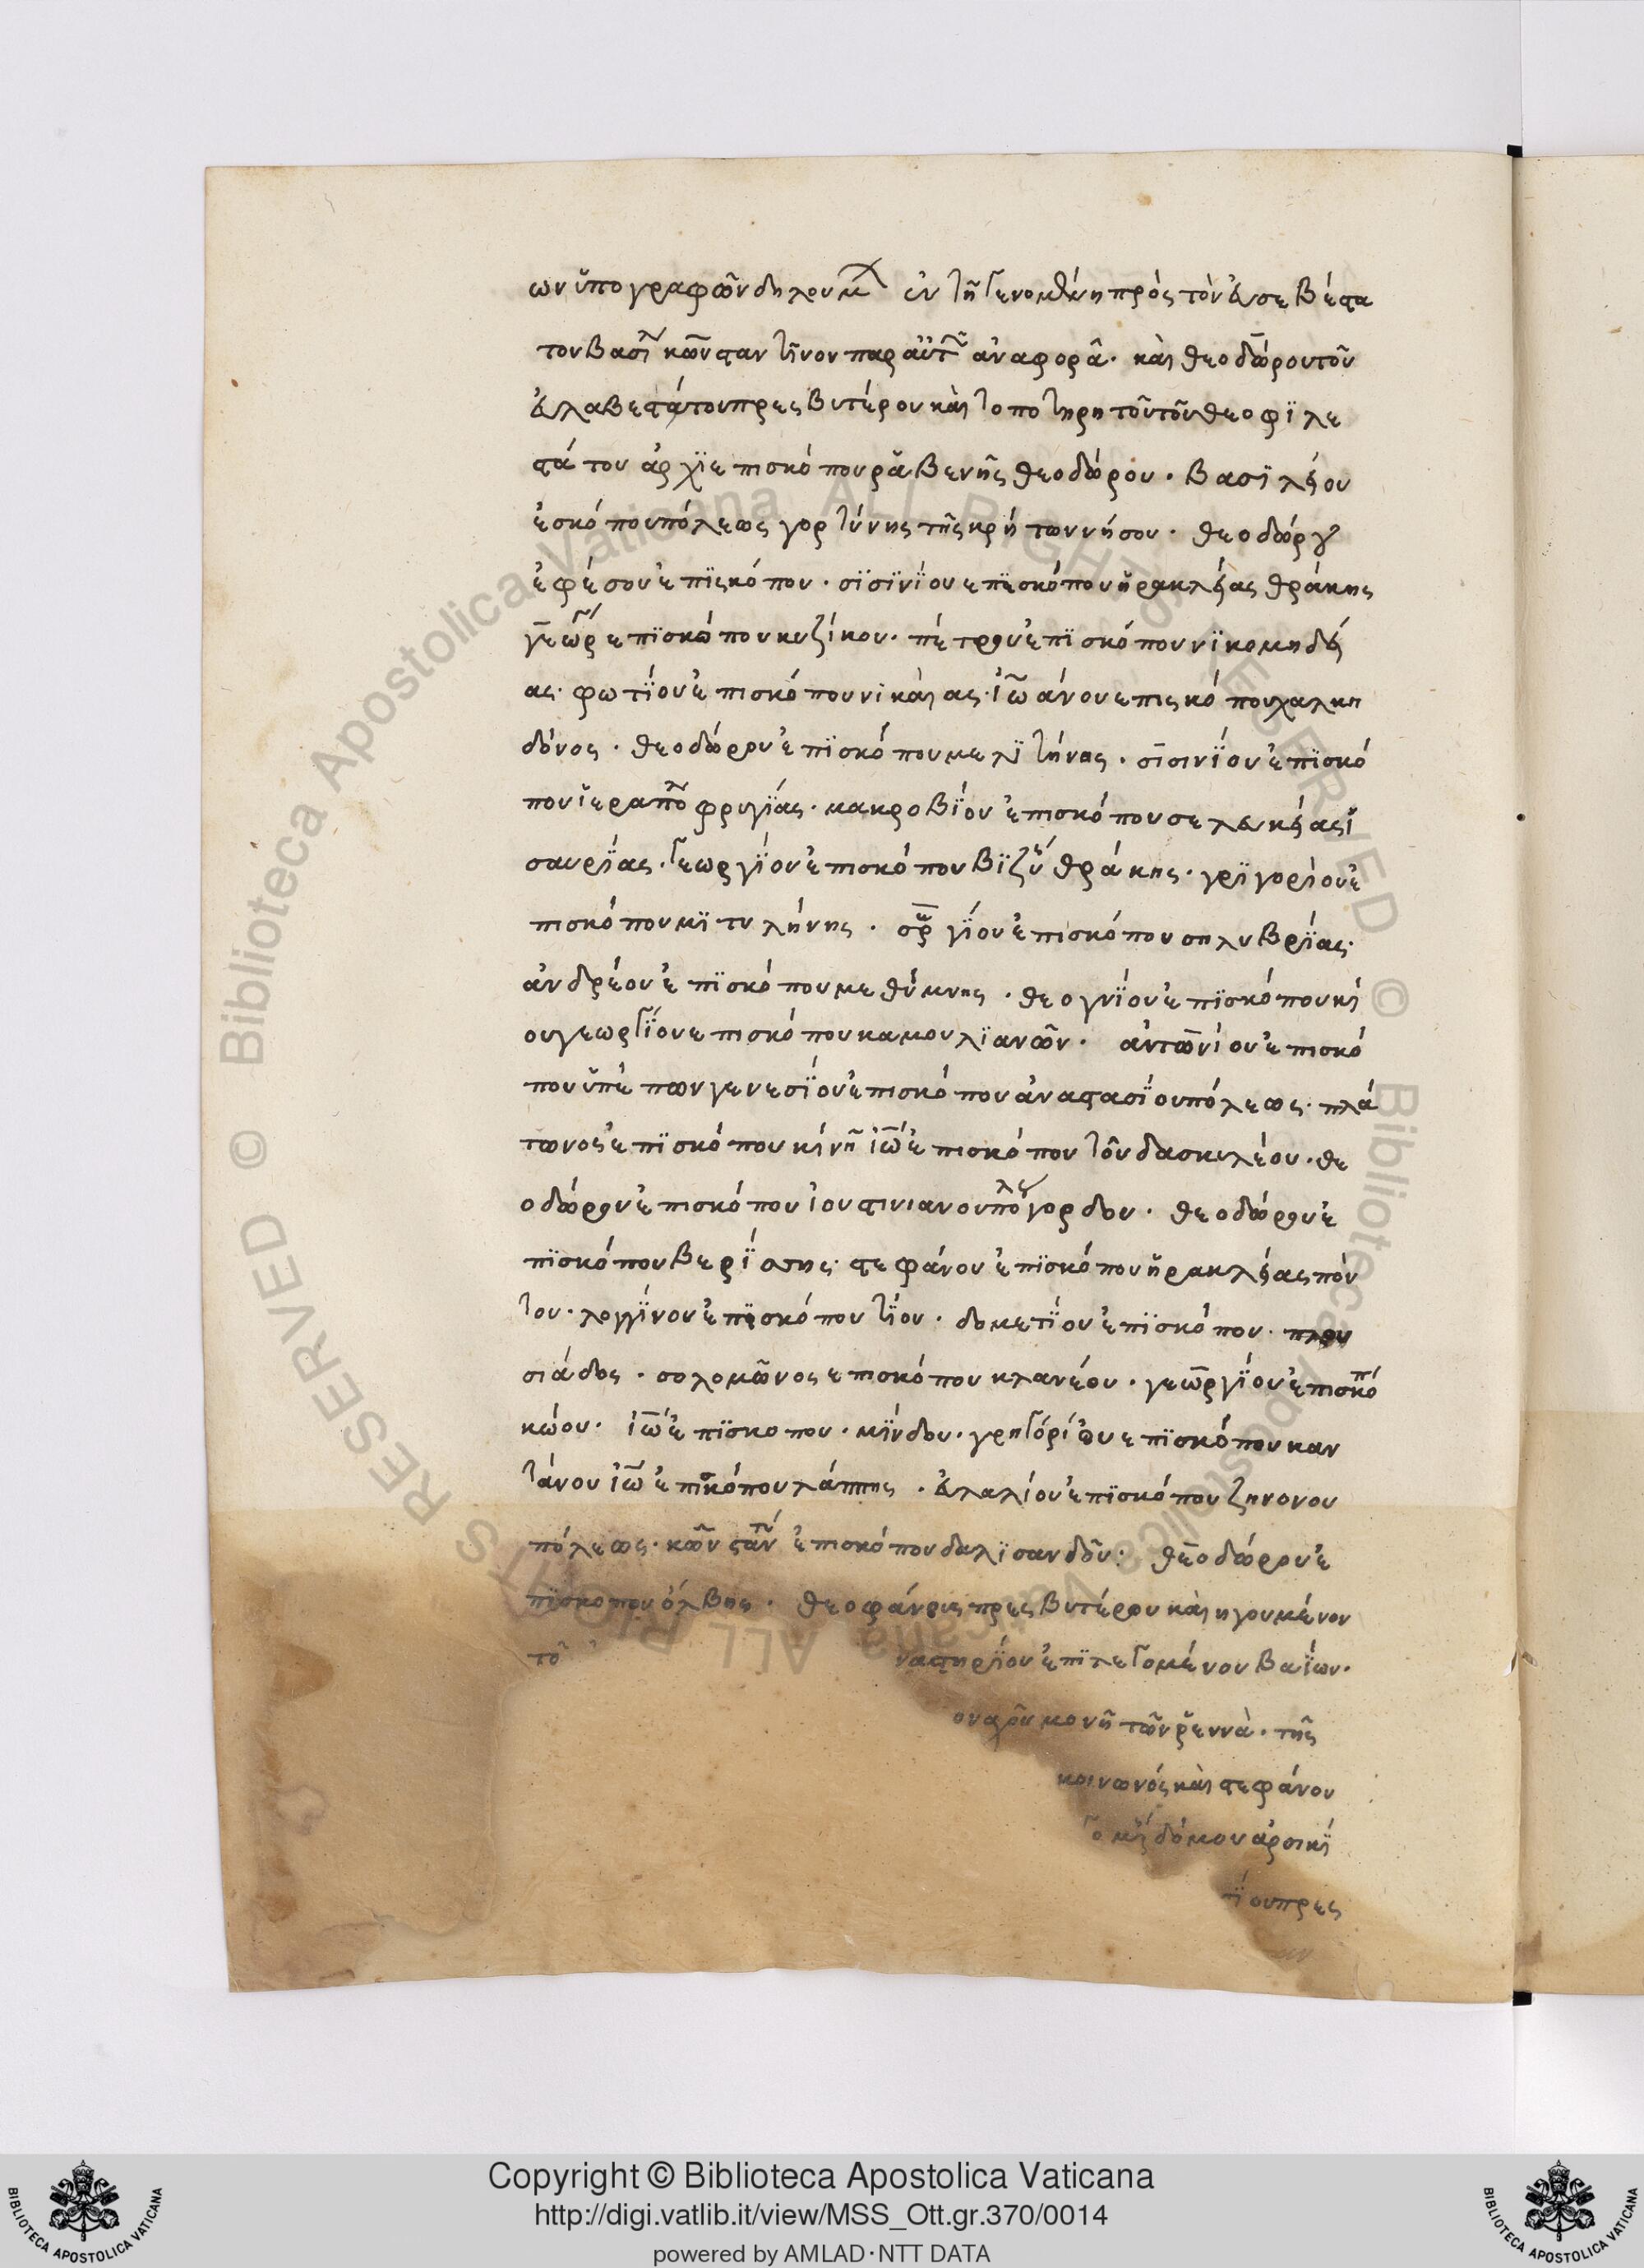 ων ὑπογραφῶν δηλουμ ἐν τῆ γενομένη πρὸς τὸν εὐσεβέστα
τον βασιλ κωνσταντῖνον παρ αὐτῶν ἀναφορᾶ · καὶ θεοδώρου τοῦ
εὐλαβεστάτου πρεσβυτέρου καὶ τοποτηρητοῦ τοῦ θεοφϊλε
στάτου ἀρχϊεπισκόπου ῥαβενῆς θεοδώρου · βασϊλείου
ἐσκόπου πόλεως γορτύνης τῆς κρήτων νήσου · θεοδώρου
ἐφέσου ἐπϊσκόπου · σϊσϊνΐου επϊσκόπου ἡρακλείας θράκης
γεωρ επϊσκώπου κυζίκου · πέτρου ἐπϊσκόπου νϊκομηδεί
ας · φωτΐου ἐπισκόπου νικαίας · ἰωάνου επισκόπου χαλκη
δόνος · θεοδώρου ἐπϊσκόπου μελϊτήνης · σισινΐου ἐπϊσκό
που ϊεραπολ φρυγΐας · μακροβΐου ἐπισκόπου σελευκείας ϊ
σαυρΐας · γεωργΐου ἐπισκόπου βϊζύ θράκης · γρϊγορίου ἐ
πισκόπου μϊτυλήνης · σεργΐου ἐπισκόπου σηλυβρΐας ·
ἀνδρέου ἐπϊσκόπου μεθύμνης · θεογνΐου ἐπϊσκόπου κί
ου γεωργΐου επισκόπου καμουλϊανῶν · ἀντωνίου ἐπισκό
που ὑπέπων γενεσΐου ἐπισκόπου ἀναστασΐουπόλεως · πλά
τωνος ἐπϊσκόπου κίνη ἰω ἐπισκόπου τοῦ δασκυλέου · θε
οδώρου ἐπισκόπου ἰουστινιανουπολ γορδου · θεοδώρου ἐ
πϊσκόπου βερΐσσης · στεφάνου ἐπϊσκόπου ἡρακλείας πόν
του · λογγΐνου ἐπϊσκόπου τΐου · δομετΐου ἐπϊσκόπου · πλου
σιάδος · σολομῶνος επισκόπου κλανέου · γεωργΐου ἐπισκό
κώου · ἰω ἐπϊσκοπου · μΐνδου · γρηγόρίου επϊσκόπου καν
τάνου ἰω ἐπισκόπου λάππης · εὐλαλίου ἐπϊσκόπου ζηνονου
πόλεως · κωνσταν ἐπισκόπου δαλϊσανδοῦ · θεοδώρου ἐ
πϊσκοπου ὄλβης · θεοφάνους πρεσβυτέρου καὶ ηγουμένου
το ναστηρΐου ἐπϊλεγομένου βαΐων ·
μονῆ τῶν ῥεννὰ · τῆς
κοινωνός καὶ στεφάνου
δόμου ἀρσικΐ
τΐου πρεσ